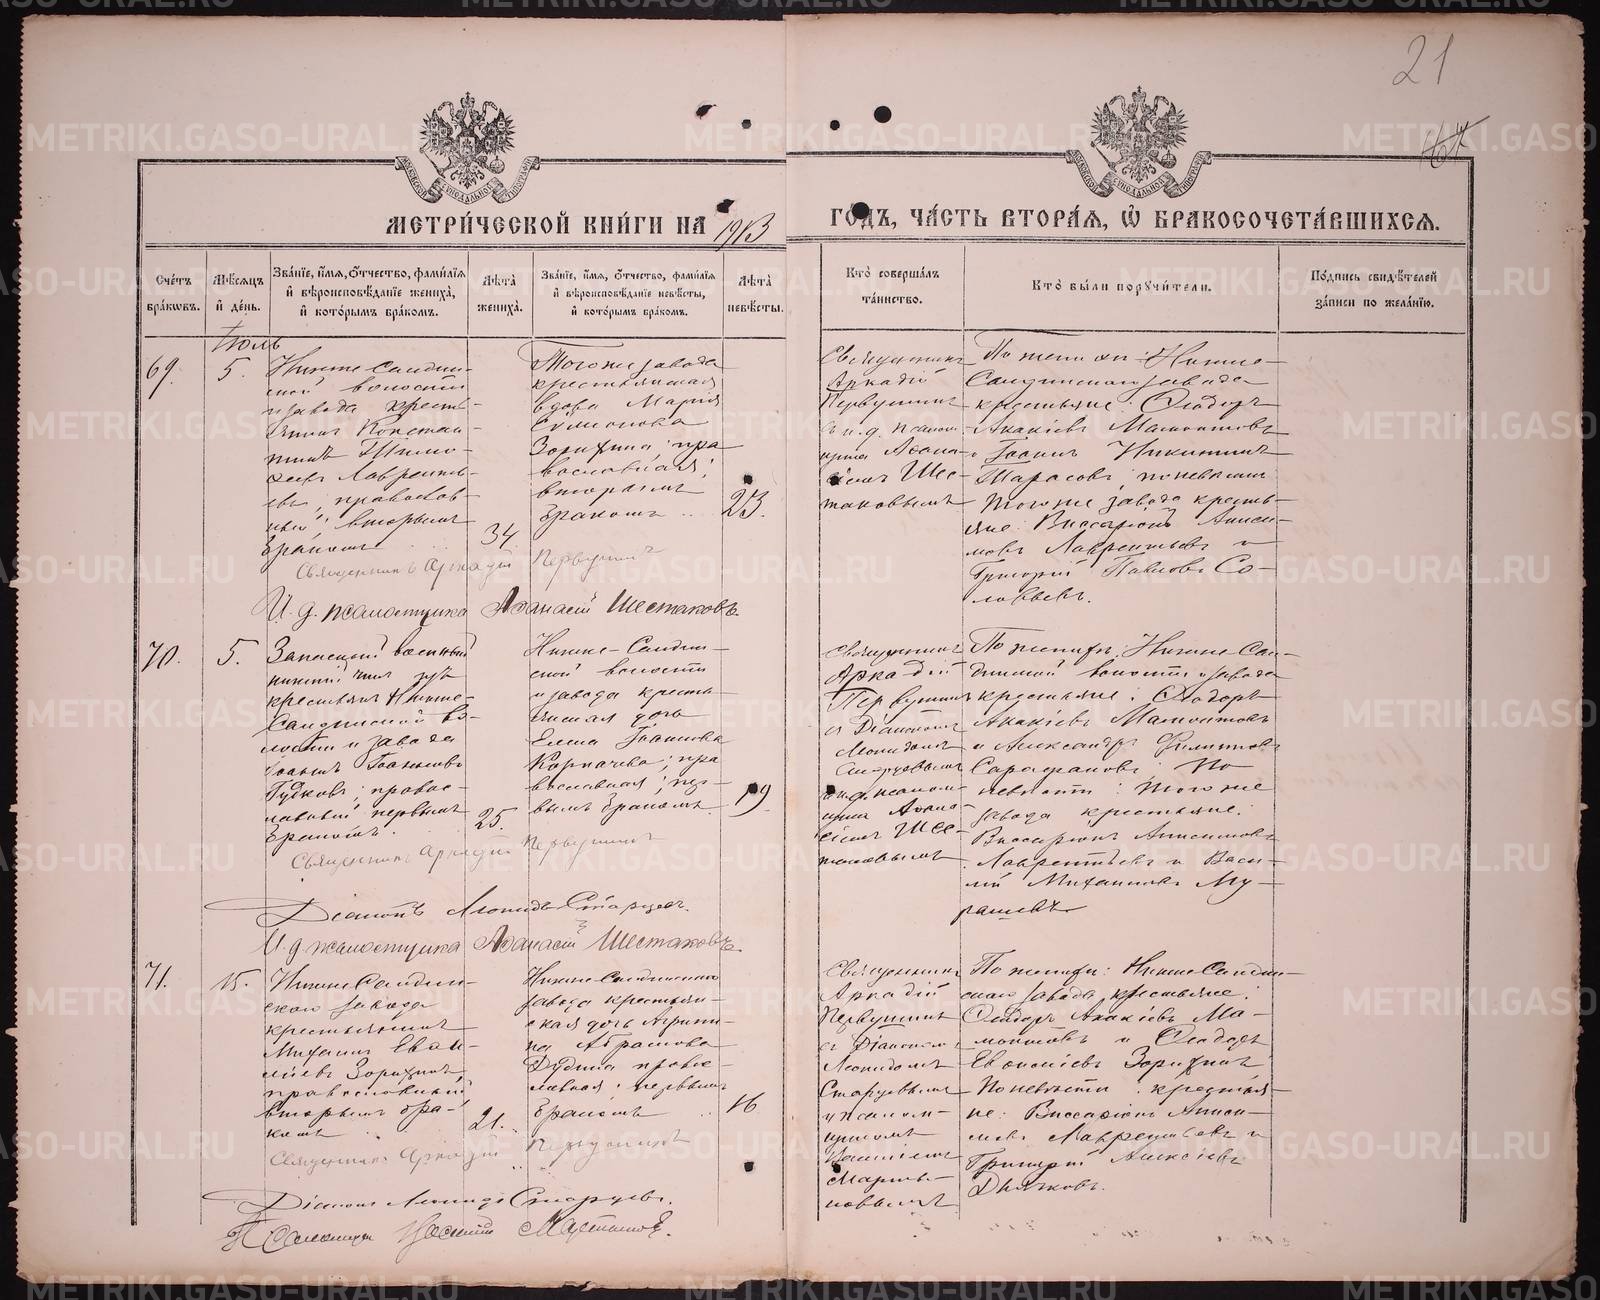 21
67
МЕТРИ́ЧЕСКОЙ КНИ́ГИ НА 1913
ГО́ДЪ, ЧА́СТЬ ВТОРА́Я, Ѽ БРАКОСОЧЕТА́ВШИХСЯ.
Сче́тъ бра́ковъ.
Мѣ́сяцъ и́ де́нь.
Зва́нїе, и́мя, ѻ́тчество, фами́лїя и́ вѣроисповѣ́данїе жениха̀, и́ кото́рымъ бра́комъ.
Лѣта̀ жениха̀.
Зва́нїе, и́мя, ѻ́тчество, фами́лїя и́ вѣроисповѣ́данїе невѣ́сты, и́ кото́рымъ бра́комъ.
Лѣта̀ невѣ́сты.
Кто̀ соверша́лъ та́инство.
Кто̀ бы́ли порꙋчи́тели.
По́дпись свидѣ́телей за́писи по жела́нїю.
Іюль
69.
5.
Нижне-Салдин-
ской волости
и завода кресть-
янинъ Констан-
тинъ Тимо-
ѳеевъ Лаврентьь-
евъ, православ-
ный; вторымъ
бракомъ
34
Того же завода
крестьянская
вдова Марія
Симонова
Зорихина, пра
вославная;
вторымъ
бракомъ
23.
Священникъ
Аркадій
Первушинъ
съ и. д. псалом-
щика Аѳана-
сіемъ Шес-
таковымъ
По женихѣ: Нижне-
Салдинскаго завода
крестьяне: Ѳеодоръ
Акакіевъ Мамонтовъ
и Іоаннъ Никитинъ
Тарасовъ; по невѣстѣ:
того же завода кресть-
яне: Виссаріонъ Аниси-
мовъ Лаврентьевъ и
Григорій Павловъ Со-
ловьевъ.
Священникъ Аркадій Первушинъ
И. д. псаломщика Аѳанасій Шестаковъ.
70.
5.
Запасный военный
нижній чинъ изъ
крестьянъ Нижне-
Салдинской во-
лости и завода
Іоаннъ Іоанновъ
Гудковъ; правос-
лавный; первымъ
бракомъ.
25.
Нижне-Салдин-
ской волости
и завода кресть-
янская дочь
Елена Іоаннова
Корпачева; пра
вославная; пер-
вымъ бракомъ.
19.
Священникъ
Аркадій
Первушинъ
съ Діакономъ
Леонидомъ
Старцевымъ
и и. д. псалом-
щика Аѳана-
сіемъ Шес-
таковымъ
По женихѣ: Нижне-Сал-
динской волости и завода
крестьяне: Ѳеодоръ
Акакіевъ Мамонтовъ
и Александръ Филипповъ
Сарафановъ; по
невѣстѣ: того же
завода крестьяне:
Виссаріонъ Анисимовъ
Лаврентьевъ и Васи-
лій Михаиловъ Му-
рашевъ
Священникъ Аркадій Первушинъ
Діаконъ Леонидъ Старцевъ.
И. д. псаломщика Аѳанасій Шестаковъ.
71.
15.
Нижне-Салдин-
скаго завода
крестьянинъ
Михаилъ Еван-
Зорихинъ,
православный
вторымъ бра-
комъ
21.
Нижне-Салдинскаго
завода крестьян-
ская дочь Агрипи-
на Абрамова
Дудина правос-
лавная; первымъ
бракомъ
16
Священникъ
Аркадій
Первушинъ
съ Діакономъ
Леонидомъ
Старцевымъ
и псалом-
щикомъ
Василіемъ
Марты-
новымъ
По женихѣ: Нижне-Салдин-
скаго завода, крестьяне:
Ѳеодоръ Акакіевъ Ма-
монтовъ и Ѳеодоръ
Зорихинъ
По невѣстѣ: крестья-
не: Виссаріонъ Аниси-
мовъ Лаврентьевъ и
Григорій Алексіевъ
Дьячковъ.
Священникъ Аркадій Первушинъ
Діаконъ Леонидъ Старцевъ.
Псаломщикъ Василій Мартыновъ.
METRIKI.GASO-URAL.RU